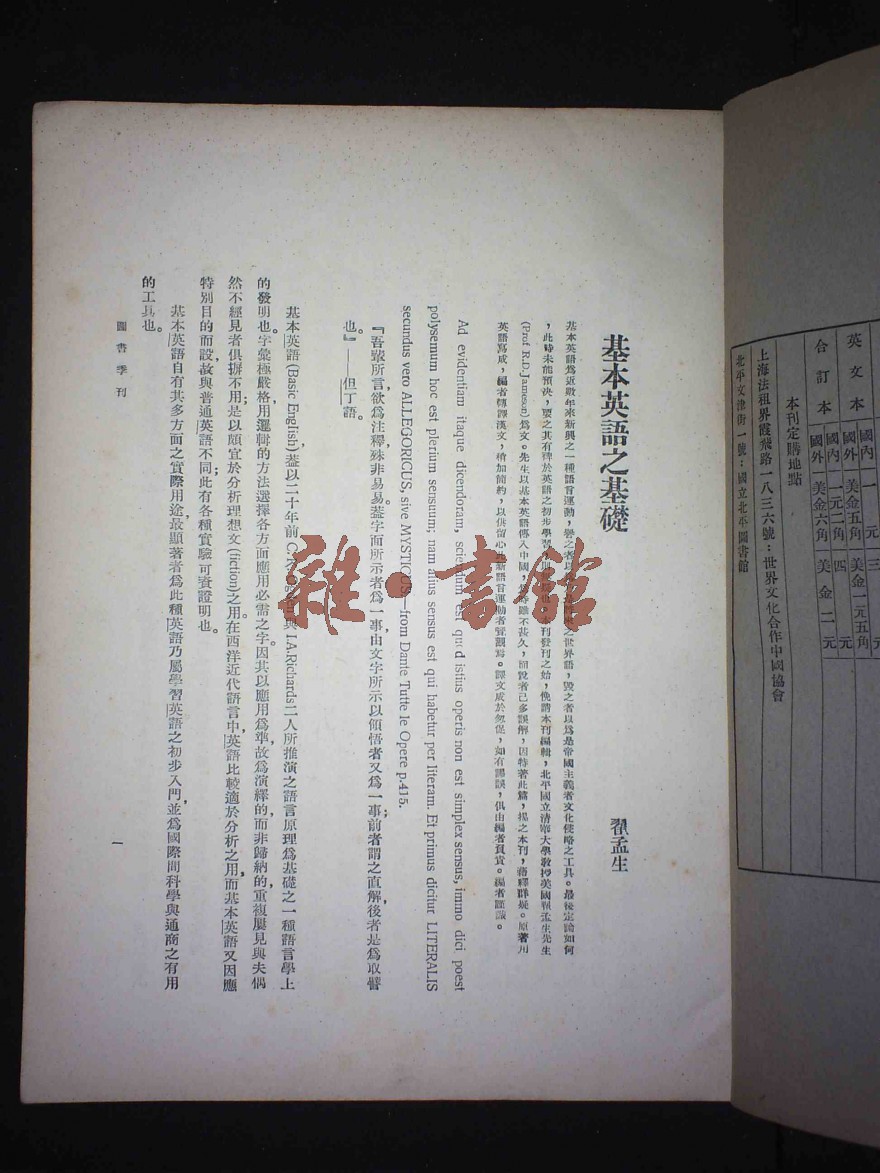 基本英語之基礎
翟孟生
基本英語爲近數年來新興之一種語言運動,譽之者以 之世界語,毀之者以爲是帝國主義者文化侵略之工具。最後定論如何
,此時未能預決,要之其有裨於英語之初步學習,則 刊發刊之始,倩請本刊編輯,北平國立清華大學教授美國翟孟生先生
(Prof. R.D. Jameson) 爲文。先生以基本英語傳入中國,爲時雖不甚久,而說者已多誤解,因特著此篇,揭之本刊,藉釋群疑。原著用
英語寫成,編者傳譯漢文,稍加簡約,以供留心此新語言運動者覽觀焉。譯文成於匆促,如有謬誤,俱由編者負責。編者謹識。
Ad evidentiam itaque dicendoram, sciendum est quod istius operis non est simplex sensus, immo dici poest
polysemum hoc est plerium sensuum; nam alius sensus est qui habetur per literam. Et primus dicitur LITERALIS
secundus vero ALLEGORICUS, sive MYSTICUS—from Dante Tutte le Opere p.415.
『吾輩所言,欲爲注釋殊非易易。蓋字而所示者爲一事,由文字所示以傾悟者又爲一事;前者謂之直解,後者是爲取譬
也。』——但丁語。
基本英語(Basic English)蓋以二十年前C.K.Ogden與I.A.Richards二人所推演之語言原理爲基礎之一種語言學上
的發明也。字彙極嚴格,用邏輯的方法選擇各方面應用必需之字,因其以應用爲準,故爲演繹的而非歸納的,重複屢見與夫偶
然不經見者俱摒不用;是以頗宜於分析理想文(fiction)之用。在西洋近代語言中,英語比較適於分析之用,而基本英語又因應
特別目的而設,故與普通英語不同;此有各種實驗可資證明也。
基本英語自有其多方面之實際用途,最顯著者爲此種英語乃屬學習英語之初步入門,並爲國際間科學與通商之有用
的工具也。
圖書季刊
一
英文本
國內 一元 三元
國外 美金五角 美金一元五角
合訂本
國內 一元二角 四元
國外 美金六角 美金二元
本刊定購地點
上海法租界霞飛路一八三六號:世界文化合作中國協會
北平文津街一號:國立北平圖書館
雜·書館